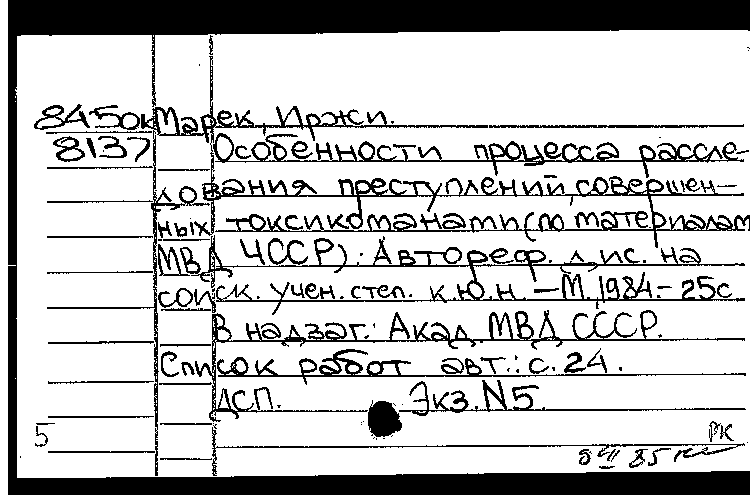 8450к Марек, Иржи.
8137 Особенности процесса рассле-
дования преступлений, совершен-
ных токсикоманами (по материалам
МВД ЧССР): Автореф. дис. на
соиск. учен. степ. к.ю.н. — М., 1984. - 25с.
В надзаг.: Акад. МВД СССР.
Список работ авт.: с. 24.
ДСП. Экз. N5.
5 РК
85